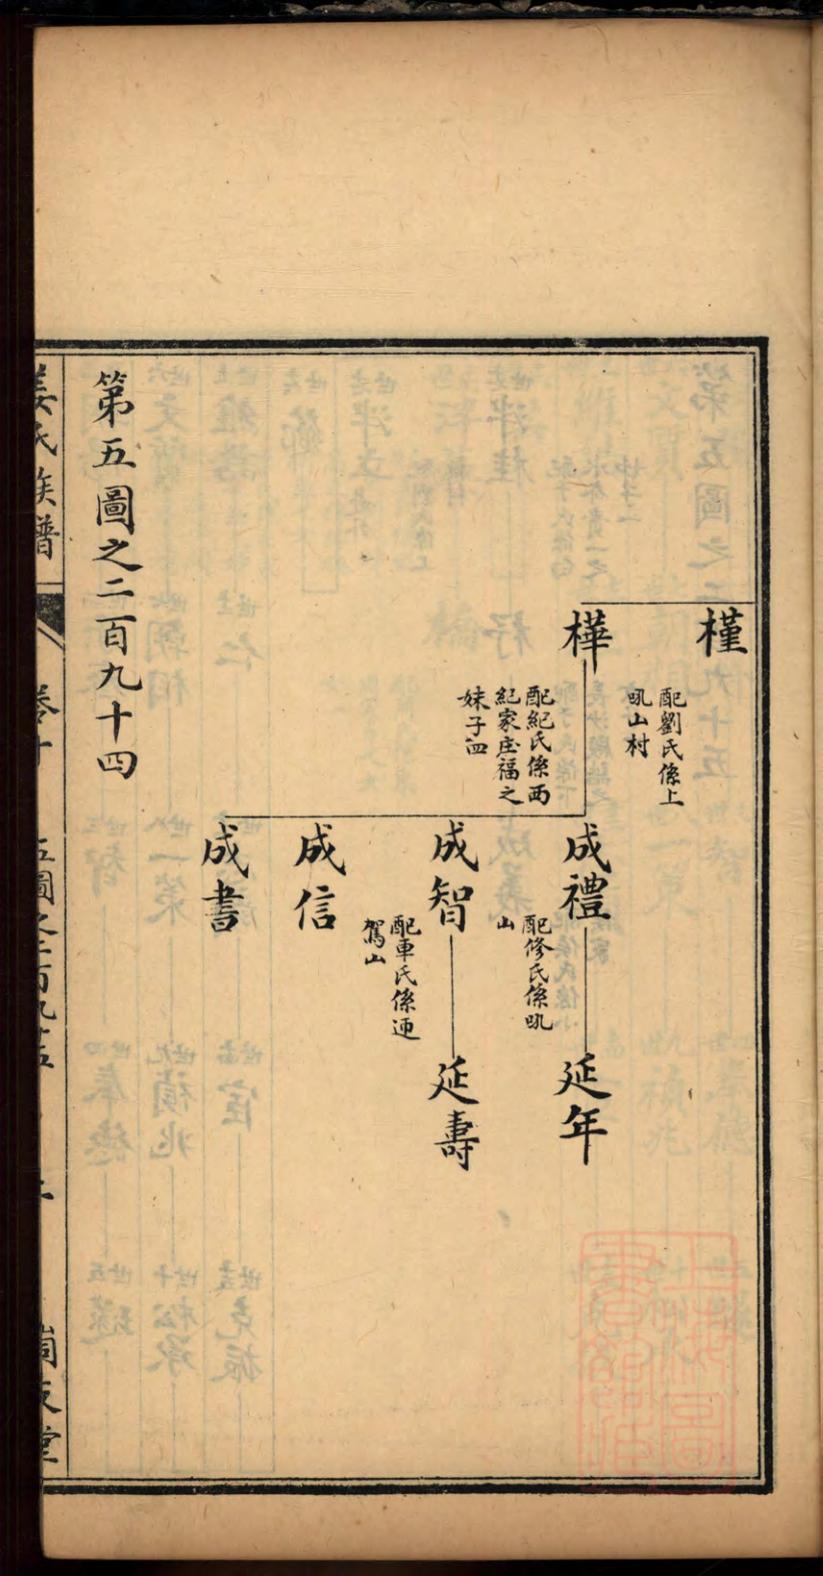 槿
配劉氏係上
㽘山村
樺
配紀氏係西
紀家庄福之
妹子四
成禮
配修氏係㽘
山
延年
成智
配車氏係
駕山
延壽
成信
成書
第五圖之二百九十四
姜氏族譜
卷十
五圖之二百九十五